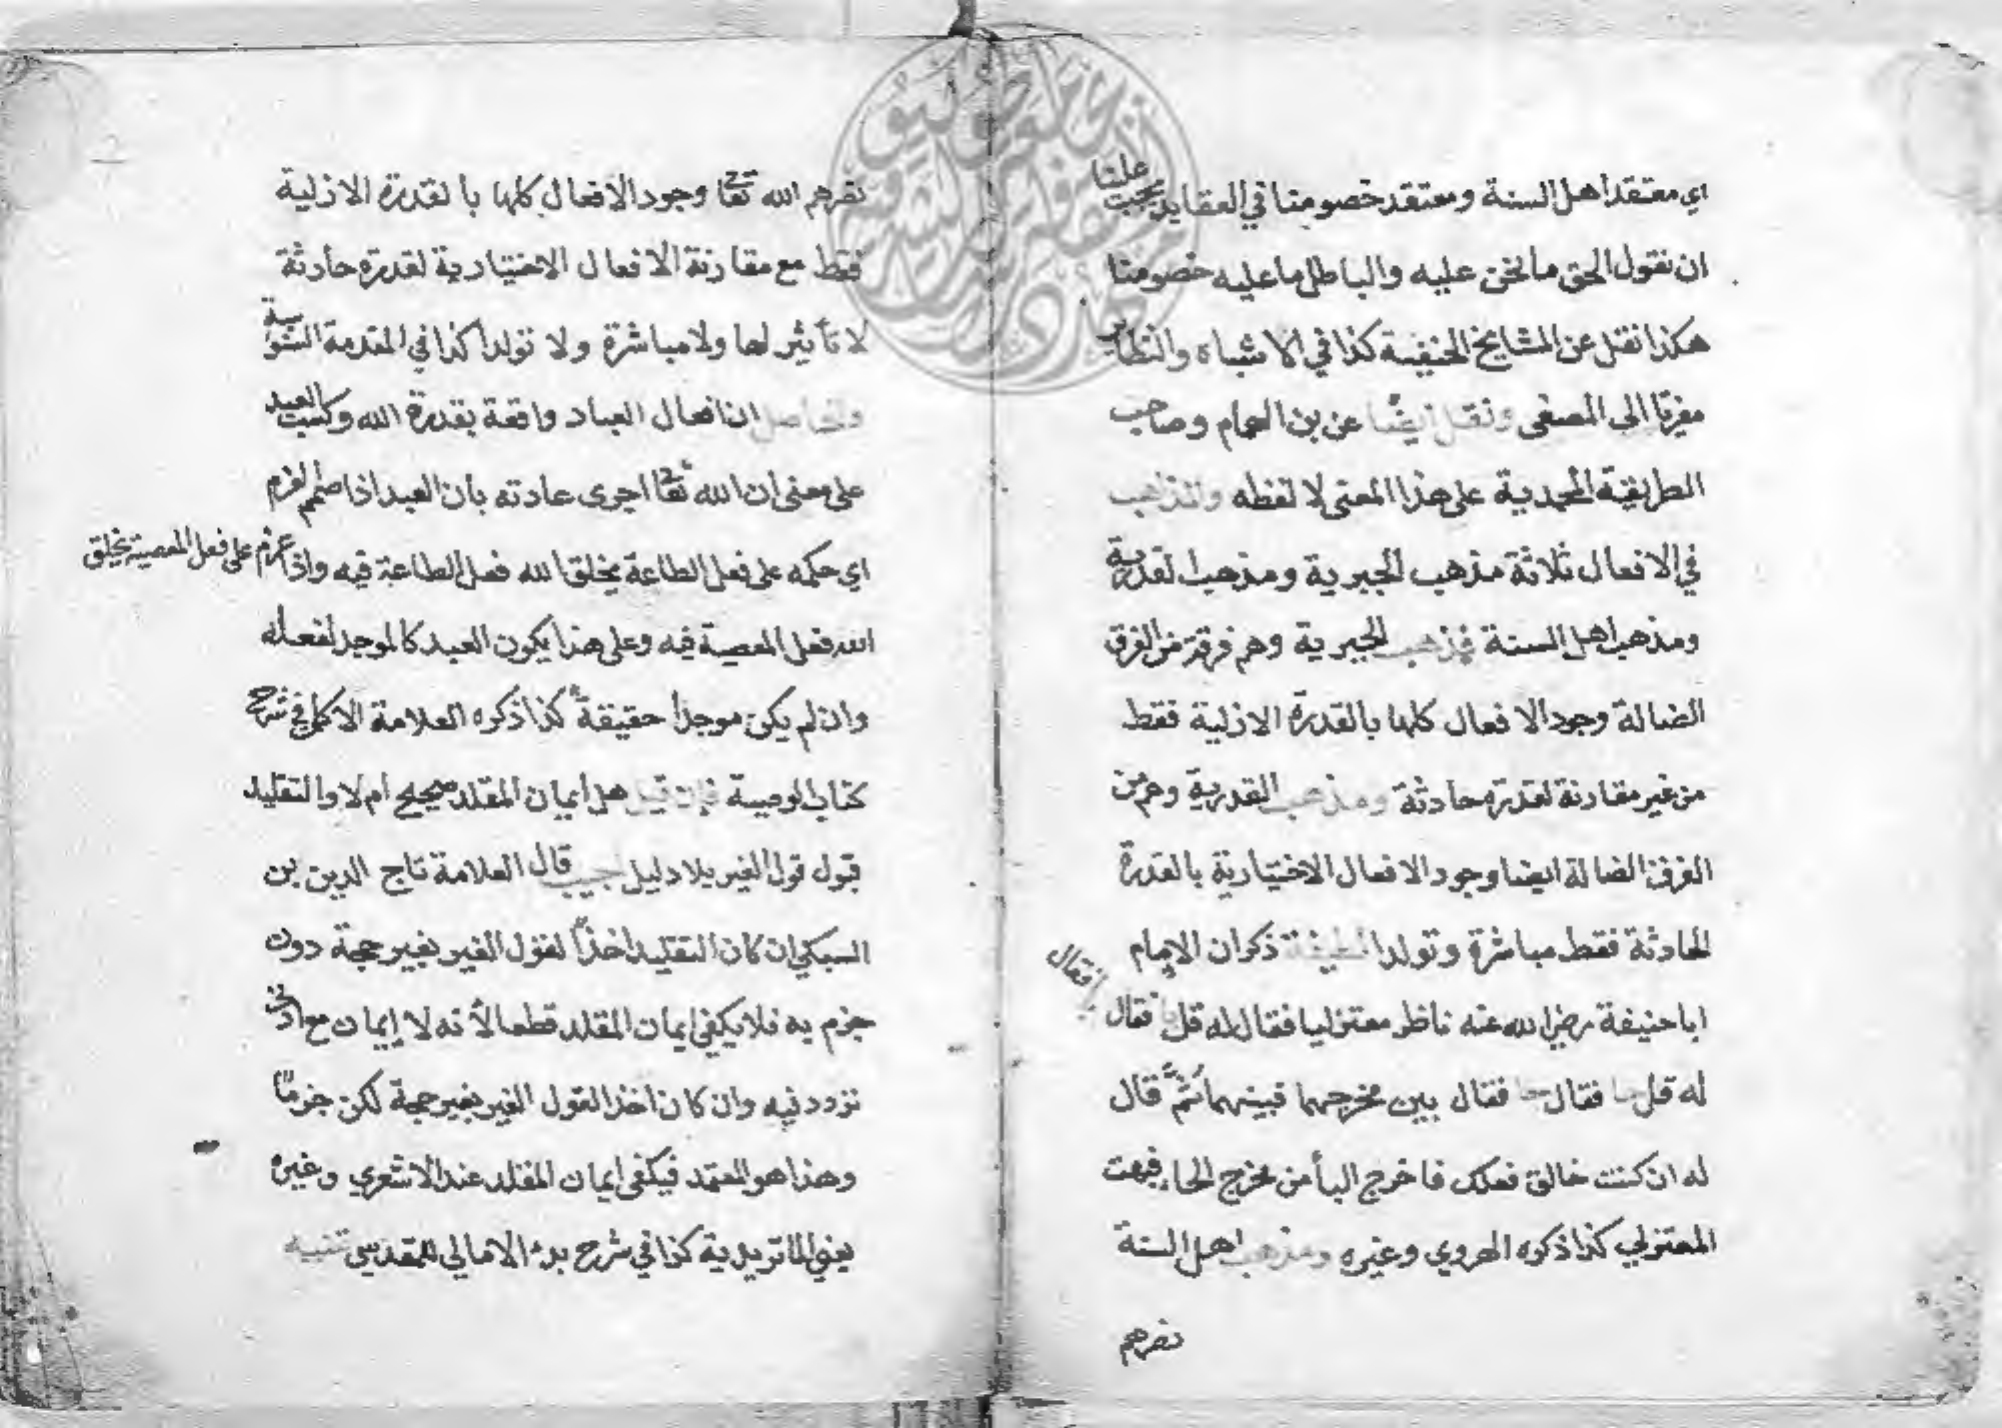 اي معتقد اهل السنة ومعتقد خصومنا في العقايد يجب علينا
ان نقول الحق ما نحن عليه والباطل ما عليه خصومنا
هكذا نقل عن المشايخ الحنفية كذا في الاشباه والنظاير
معزيا الى المصفى ونقل ايضا عن بن الهمام وصاحب
الطريقة المحمدية على هذا المعنى لا لفظه والمذاهب
في الافعال ثلاثة مذهب الجبرية ومذهب القدرية
ومذهب اهل السنة فمذهب الجبرية وهم فرقة من الفرق
الضالة وجود الافعال كلها بالقدرة الازلية فقط
من غير مقارنة لقدرة حادثة ومذهب القدرية وهم من
الفرق الضالة ايضا وجود الافعال الاختيارية بالقدرة
الحادثة فقط مباشرة وتولدا لطيفة ذكر ان الامام
ابا حنيفة رضي الله عنه ناظر معتزليا فقال له قل با فقال
له قل حا فقال حا فقال بين مخرجهما فبينهما ثم قال
له ان كنت خالق فعلك فاخرج البأ من مخرج الحاء فبهت
المعتزلي كذا ذكره الهروي وغيره ومذهب اهل السنة
نصرهم
نصرهم الله تعا وجود الافعال كلها بالقدرة الازلية
فقط مع مقارنة الافعال الاختيارية لقدرة حادثة
لا تأثير لها ولا مباشرة ولا تولدا كذا في المقدمة السنوسية
والحاصل ان افعال العباد واقعة بقدرة الله وكسب العبد
على معنى ان الله تعا اجرى عادته بان العبد اذا صمم لعزم
اي حكمه على فعل الطاعة يخلق الله فعل الطاعة فيه واذا عزم على فعل المعصية يخلق
الله فعل المعصية فيه وعلى هذا يكون العبد كالموجد لفعله
وان لم يكن موجدا حقيقة كذا ذكره العلامة الاكمل في شرح
كتاب الوصية فان قيل هل ايمان المقلد صحيح ام لا والتقليد
قبول قول الغير بلا دليل اجيب قال العلامة تاج الدين بن
السبكي ان كان التقليد اخذا لقول الغير بغير حجة دون
جزم به فلا يكفي ايمان المقلد قطعا لأنه لا إيمان مع ادنى
تردد فيه وان كان اخذ القول الغير بغير حجة لكن جزما
وهذا هو المعتمد فيكفي ايمان المقلد عند الاشعري وغيره
يعني الماتريدية كذا في شرح بدء الامالي للمقدسي تنبيه